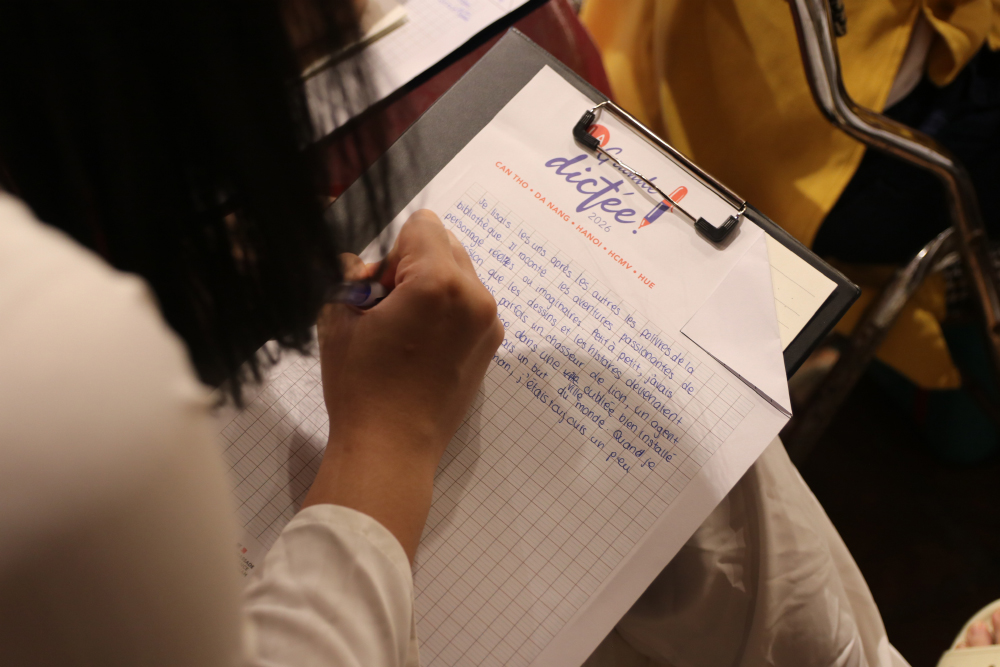 La
Grande
dictée!
2026
CAN THO • DA NANG • HANOI • HCMV • HUE
Je lisais les uns après les autres les
bibliothèque. Il raconte les aventures passionantes de la
personage réelles ou imaginaires. Petit à petit, j'avais
que les dessins et les histoires devenaient
parfois un chasseur de lion, un agent
dans une ville oubliée bien installé
ais un but du monde. Quand je
non, j'étais toujours un peu